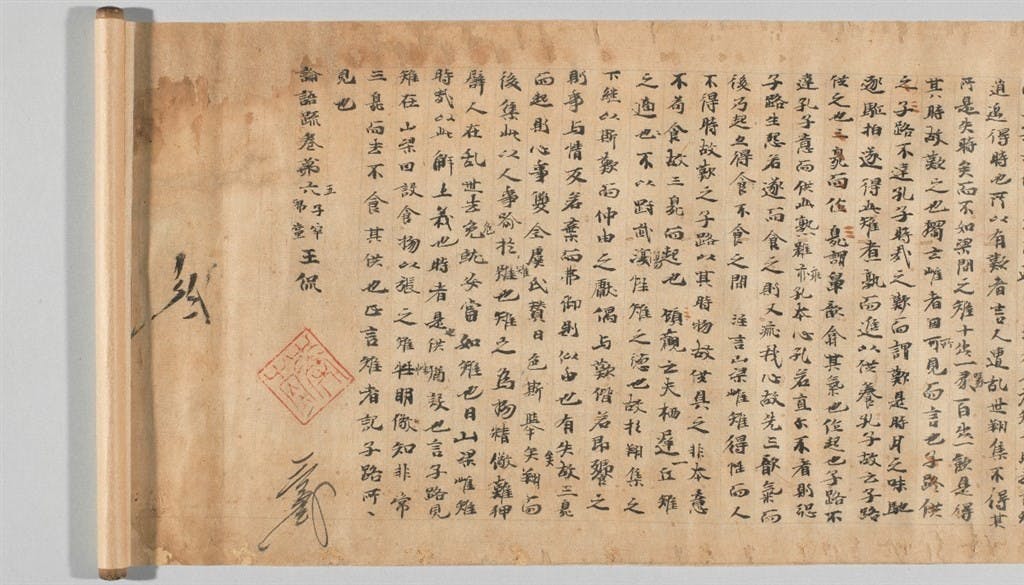 逍遥得時也所以有歎者言人遭乱世翔集不得其
所是失時矣而不如梁間之雉十步一啄百步一飲是得
其時故歎之也獨云雌者因所見而言也子路供
之子路不達孔子時哉之歎而謂歎是時月之味馳
逐驅拍遂得此雉者熟而進以供養孔子故云子路
供之也三臭而作臭謂鼻歆翕其氣也作起也子路不
達孔子意而供此熟雉乖孔本心孔若直尓不者則恐
子路生怨若遂而食之則又乖我心故先三歆氣而
後乃起且得食不食之間 注言山梁雌雉得性而人
不得時故歎之子路以其時物故供具之非本意
不苟食故三臭而起也 顧觀云夫栖遲一丘雉
之適也不以剛武傷性雉之德也故於翔集之
下継以斯歎而仲由之獻偶与歎偕若即饗之
則事与情反若棄而弗御則似由也有失故三臭
而起則心事雙全虞氏賛曰色斯擧矣翔而
後集此以人事喻於雉也雉之為物精儆難狎
譬人在乱世去危就安當如雉也曰山梁雌雉
時哉以此解上義也時者是供猶設也言子路見
雉在山梁因設食物以張之雉性明儆知非常
三臭而去不食其供也正言雉者記子路所〻
見也
論語疏卷第六 王侃